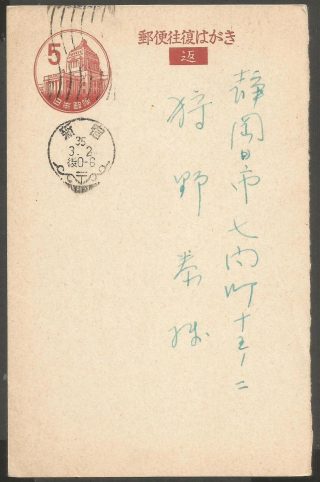 郵便往復はがき
返
5
日本郵便
新宿
35
3.2
後0-6
静岡市七間町十五ノ二
狩野泰様